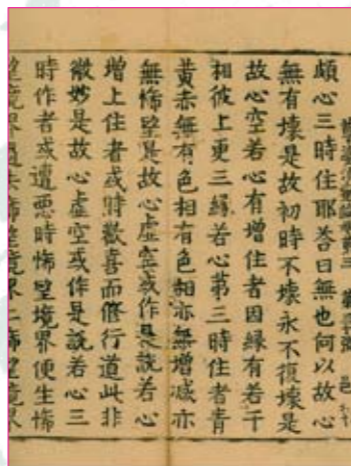 頗心三時住耶荅曰無也何以故心
無有壞是故初時不壞永不復壞是
故心空若心有增住者因緣有若干
相彼上更三緣若心苐三時住者青
黃赤無有色相有色相亦無增減亦
無悕望是故心虛空或作是說若心
增上住者或時歡喜而脩行道此非
微妙是故心虛空或作是說若心三
時作者或遭惡時悕望境界便生悕
望境界過去悕望境界二悕望境界